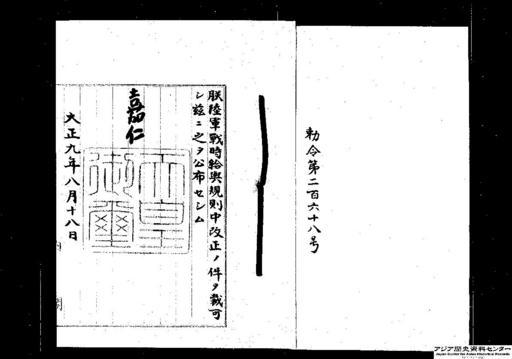 勅令第二百六十八号
朕陸軍戰時給與規則中改正ノ件ヲ裁可
シ茲ニ之ヲ公布セシム
嘉仁
天皇
御璽
大正九年八月十八日
アジア歴史資料センター
Japan Center for Asian Historical Records